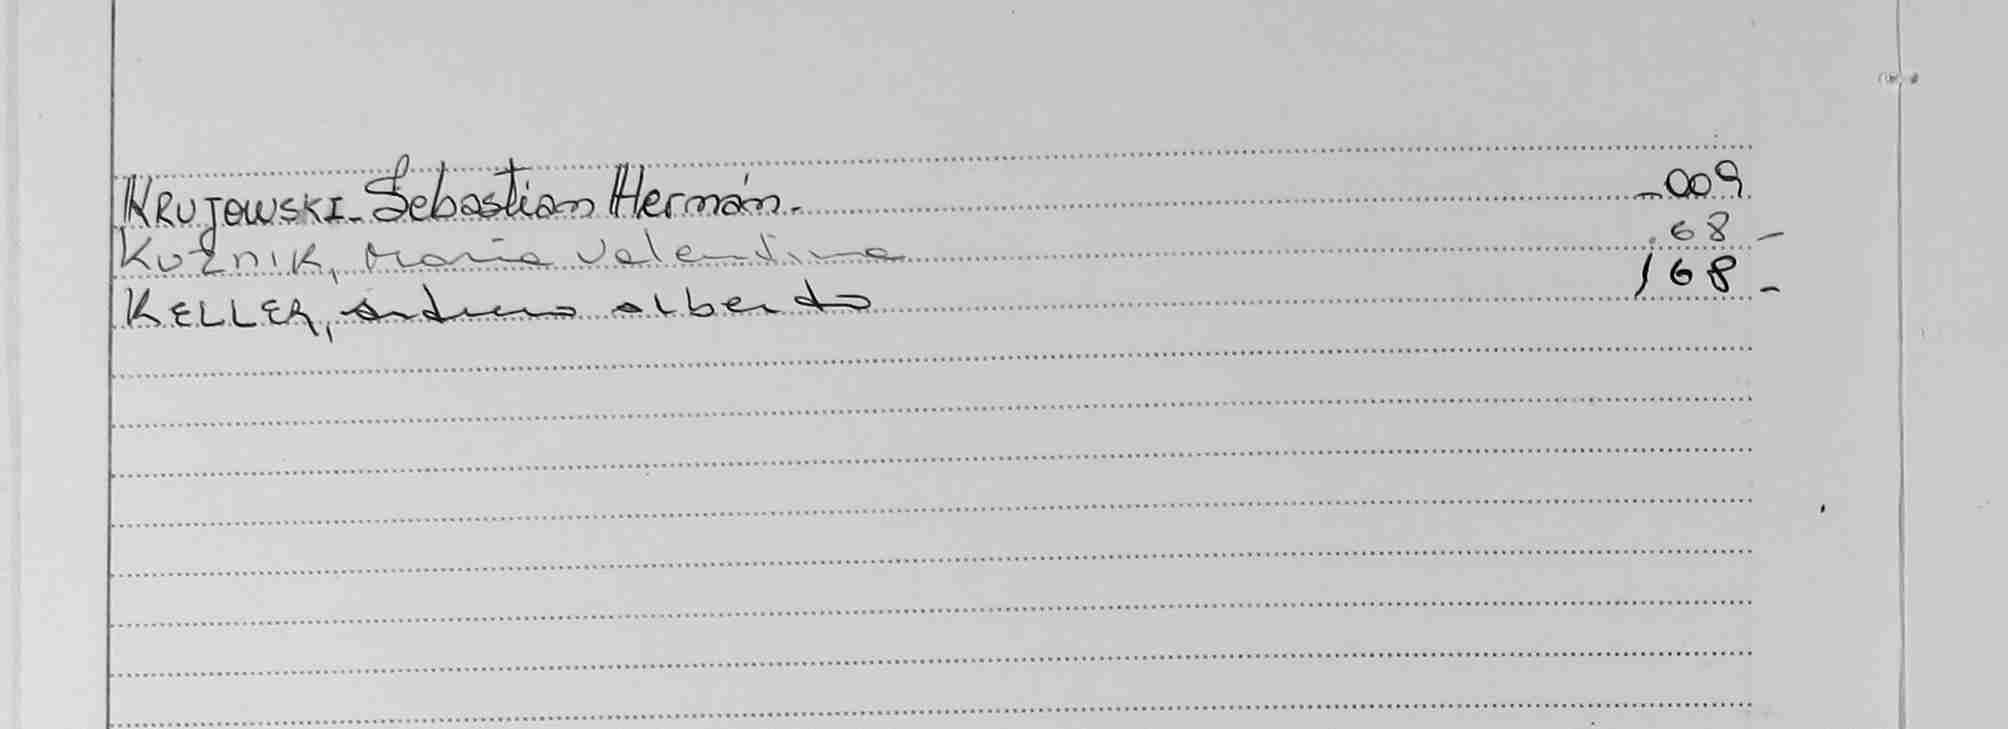 KRUJOWSKI - Sebastian Hermán. - 009
KUZNIK, Maria Valentina 68 -
KELLER, Andres Alberto 168 -